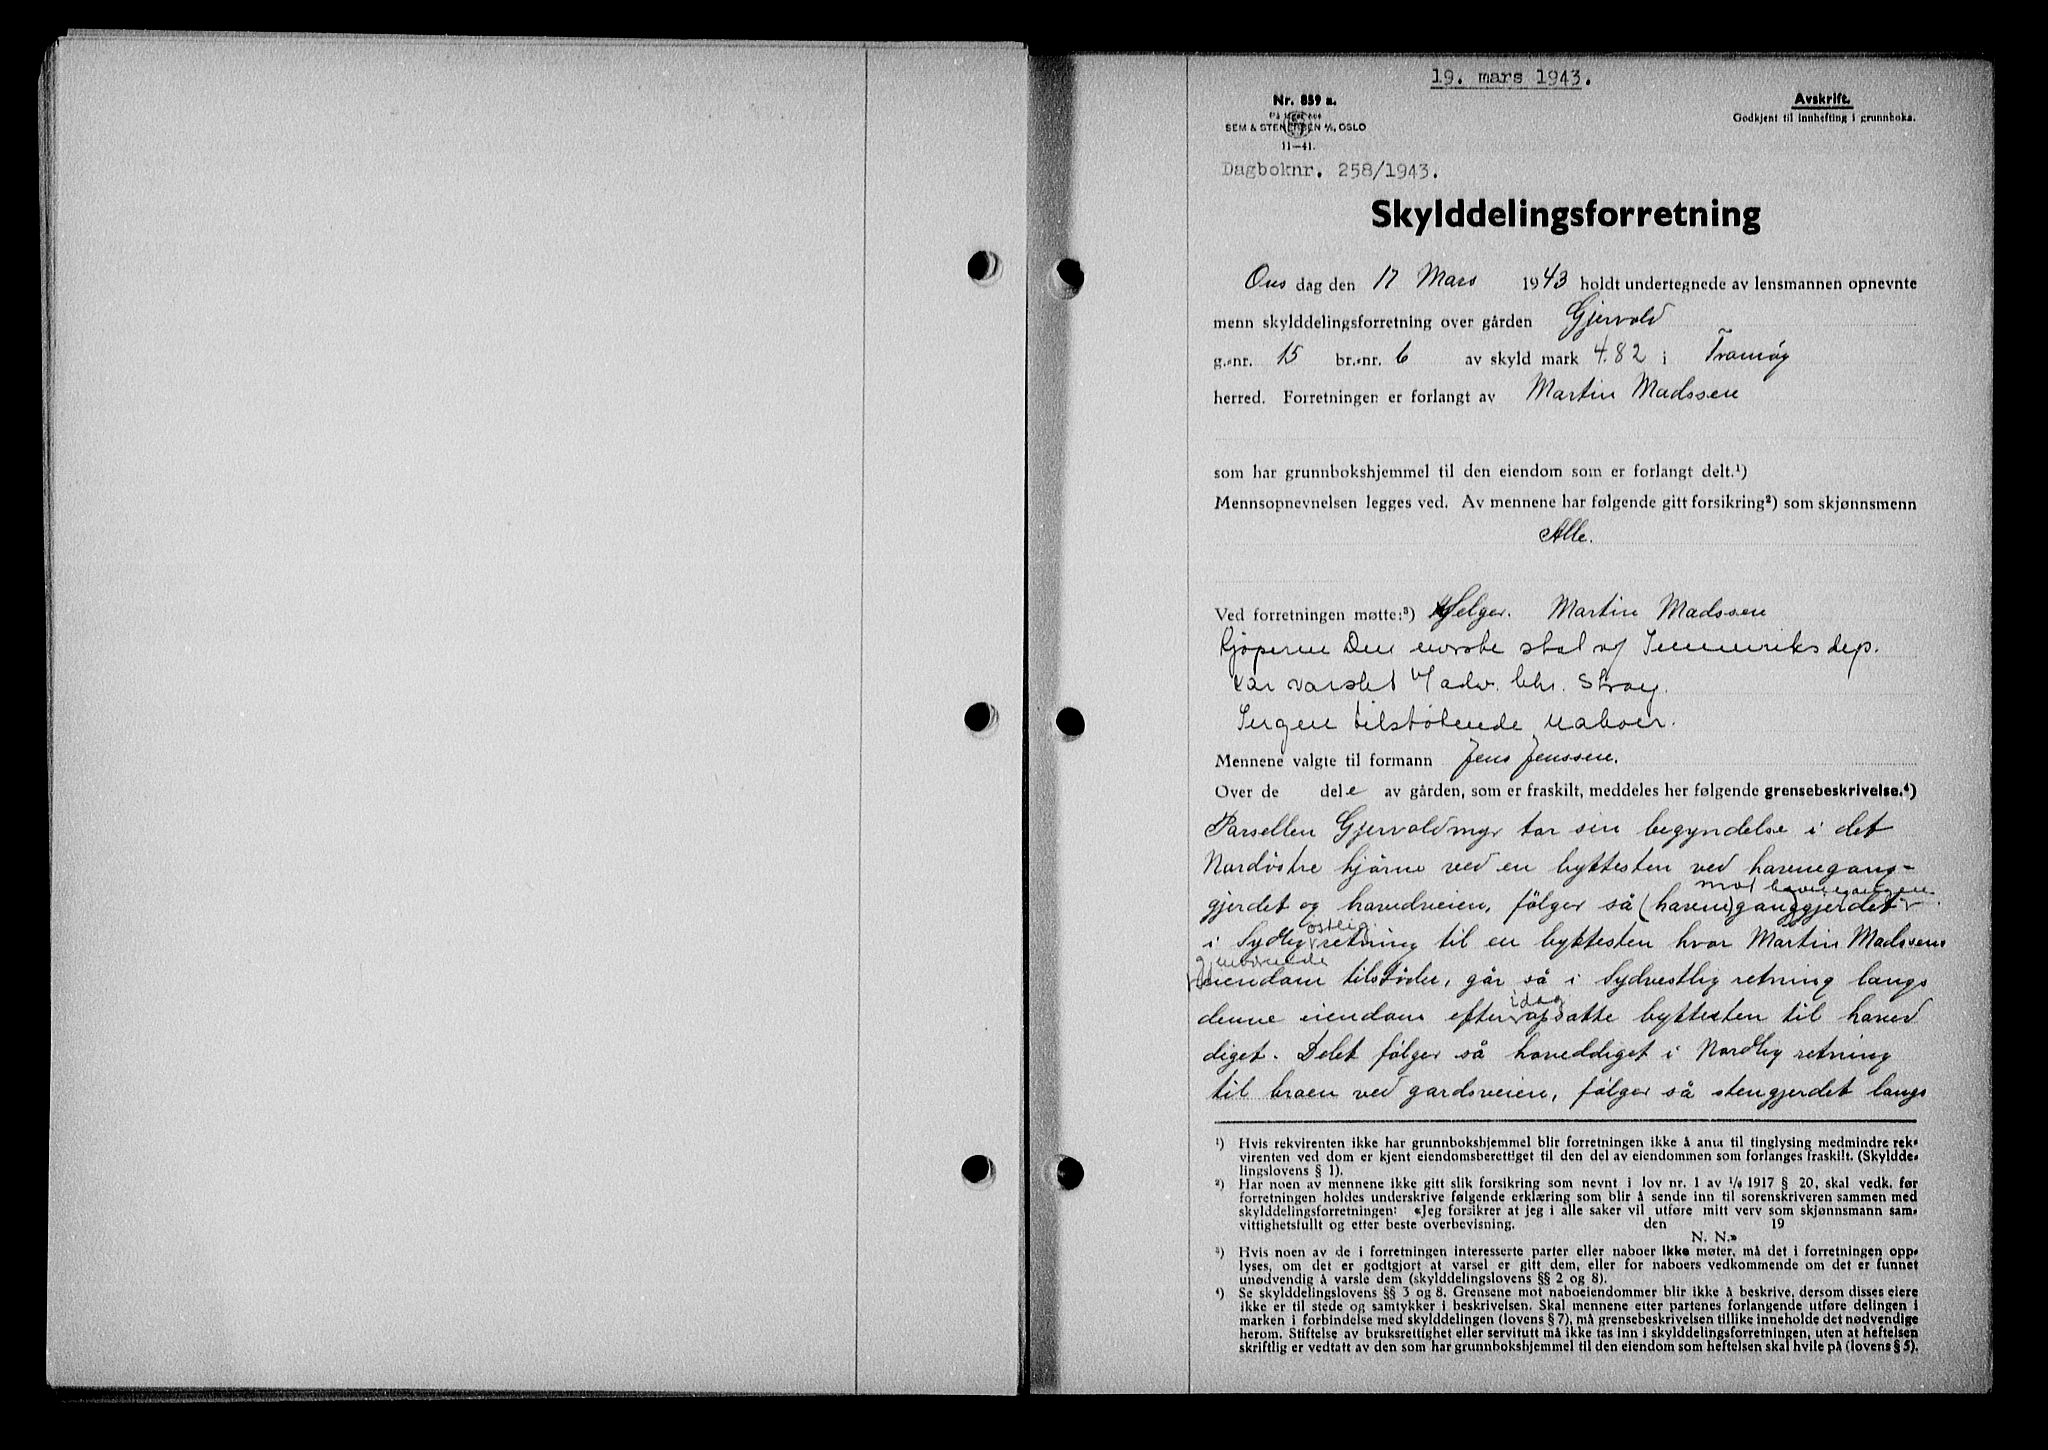 19. mars 1943.
Nr. 859 a.
På lager hos
SEM & STENERSEN A/S, OSLO
11—41.
Avskrift.
Godkjent til innhefting i grunnboka.
Dagboknr. 258/1943.
Skylddelingsforretning
Ons dag den 17 Mars 1943 holdt undertegnede av lensmannen opnevnte
menn skylddelingsforretning over gården Gjervold
g.-nr. 15 br.-nr. 6 av skyld mark 4.82 i Tromøy
herred. Forretningen er forlangt av Martin Madssen
som har grunnbokshjemmel til den eiendom som er forlangt delt.¹)
Mennsopnevnelsen legges ved. Av mennene har følgende gitt forsikring²) som skjønnsmenn
Alle.
Ved forretningen møtte:³) Selger. Martin Madssen
Kjøperne Den norske stat v/ Innenriksdep.
var varslet v/ adv. Chr. Stray.
Ingen tilstøtende naboer.
Mennene valgte til formann Jens Jenssen.
Over de dele av gården, som er fraskilt, meddeles her følgende grensebeskrivelse.⁴)
Parsellen Gjervoldmyr tar sin begyndelse i det
Nordøstre hjørne ved en byttesten ved havnegang-
gjerdet og hovedveien, følger så (havne)gang)gjerdet
mot havnegangen
i Sydlig retning til en byttesten hvor Martin Madssens
østlig
gjenværende
eiendom tilstøder, går så i Sydvestlig retning langs
denne eiendom efter opsatte byttesten til hoved
idag
diget. Delet følger så hoveddiget i Nordlig retning
til broen ved gardsveien, følger så stengjerdet langs
¹) Hvis rekvirenten ikke har grunnbokshjemmel blir forretningen ikke å anta til tinglysing medmindre rek-
virenten ved dom er kjent eiendomsberettiget til den del av eiendommen som forlanges fraskilt. (Skyldde-
lingslovens § 1).
²) Har noen av mennene ikke gitt slik forsikring som nevnt i lov nr. 1 av 1/6 1917 § 20, skal vedk. før
forretningen holdes underskrive følgende erklæring som blir å sende inn til sorenskriveren sammen med
skylddelingsforretningen: «Jeg forsikrer at jeg i alle saker vil utføre mitt verv som skjønnsmann sam-
vittighetsfullt og etter beste overbevisning. den 19
N. N.»
³) Hvis noen av de i forretningen interesserte parter eller naboer ikke møter, må det i forretningen opp-
lyses, om det er godtgjort at varsel er gitt dem, eller for naboers vedkommende om det er funnet
unødvendig å varsle dem (skylddelingslovens §§ 2 og 8).
⁴) Se skylddelingslovens §§ 3 og 8. Grensene mot naboeiendommer blir ikke å beskrive, dersom disses eiere
ikke er til stede og samtykker i beskrivelsen. Skal mennene etter partenes forlangende utføre delingen i
marken i forbindelse med skylddelingen (lovens § 7), må grensebeskrivelsen tillike inneholde det nødvendige
herom. Stiftelse av bruksrettighet eller servitutt må ikke tas inn i skylddelingsforretningen, uten at heftelsen
skriftlig er vedtatt av den som har grunnbokshjemmel til den eiendom som heftelsen skal hvile på (lovens § 5).